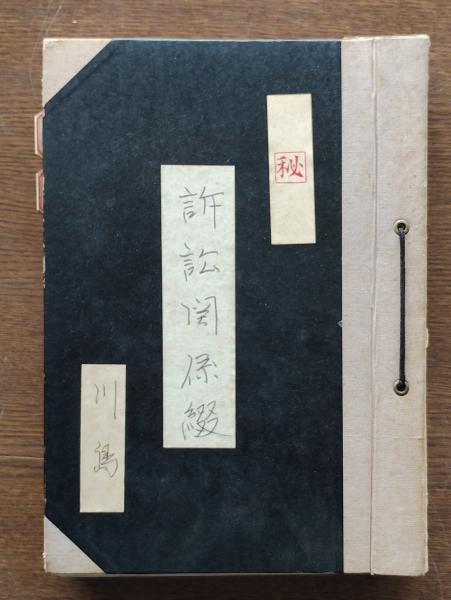 秘
訴訟関係綴
川島